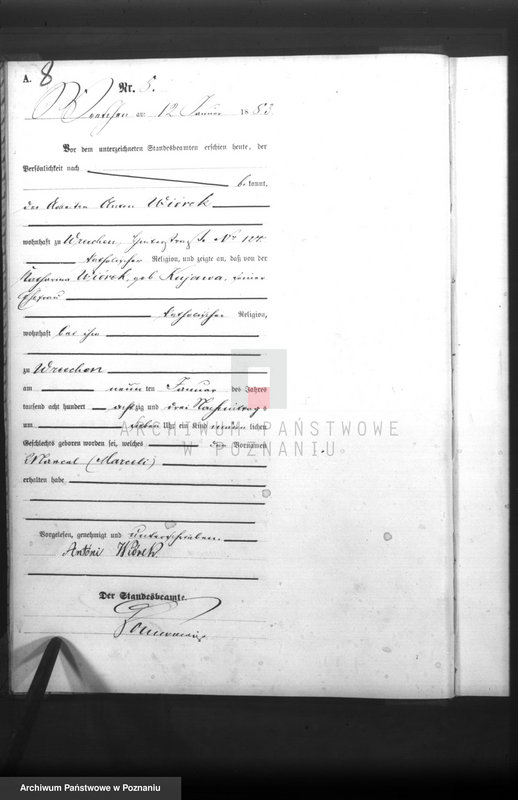 A. 8
Nr. 5.
Wreschen am 12 Januar 1883
Vor dem unterzeichneten Standesbeamten erschien heute, der
Persönlichkeit nach
bekannt,
der Arbeiter Anton Wiórek
wohnhaft zu Wreschen, No 124
katholischer Religion, und zeigte an, daß von der
Katharina Wiórek, geb Kujawa, seiner
Ehefrau
katholischer Religion,
wohnhaft bei ihm
zu Wreschen
am neunten Januar des Jahres
tausend acht hundert achtzig und drei Nachmittags
um sieben Uhr ein Kind männlichen
Geschlechts geboren worden sei, welches den Vornamen
Marcel (Marceli)
erhalten habe
Vorgelesen, genehmigt und unterschrieben.
Antóni Wiórek
Der Standesbeamte.
ARCHIWUM PAŃSTWOWE
W POZNANIU
Archiwum Państwowe w Poznaniu